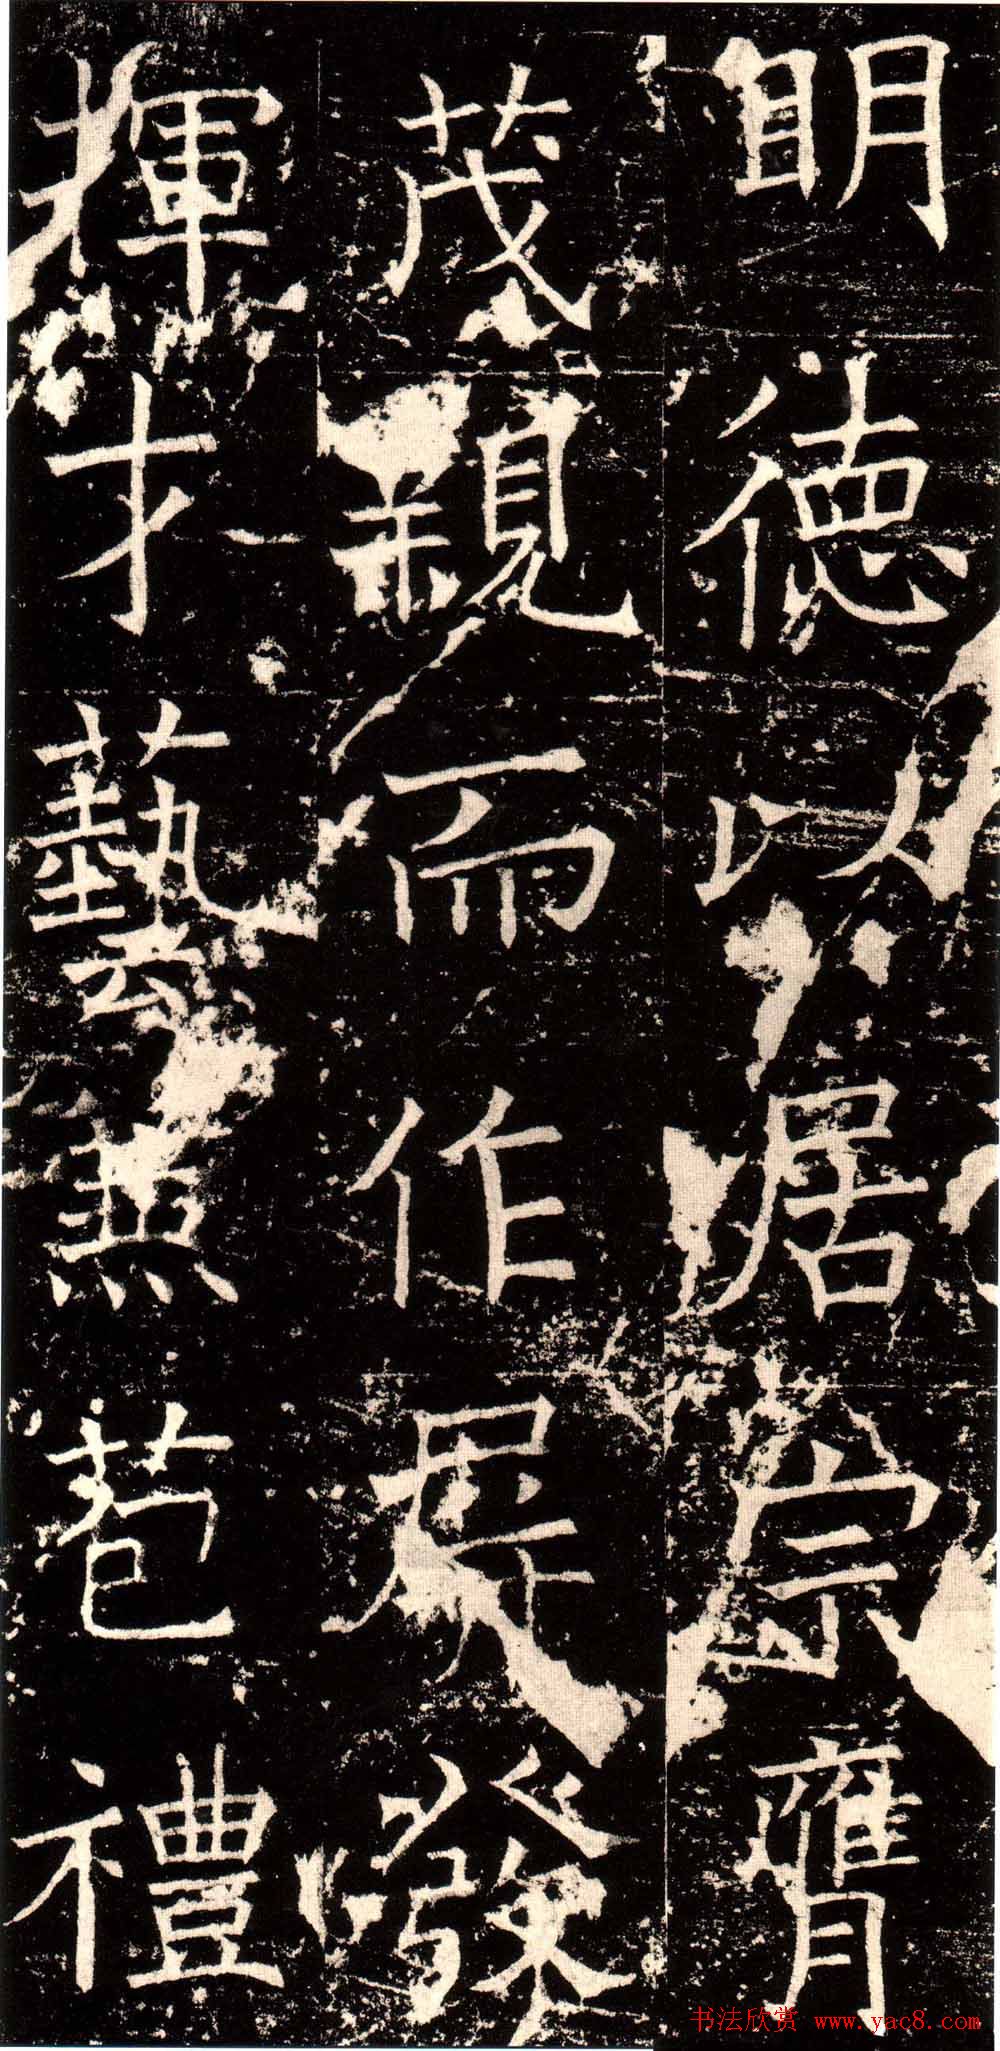 明德以居宗膺
茂親而作屏發
揮才藝兼苞禮
书法欣赏 www.yac8.com